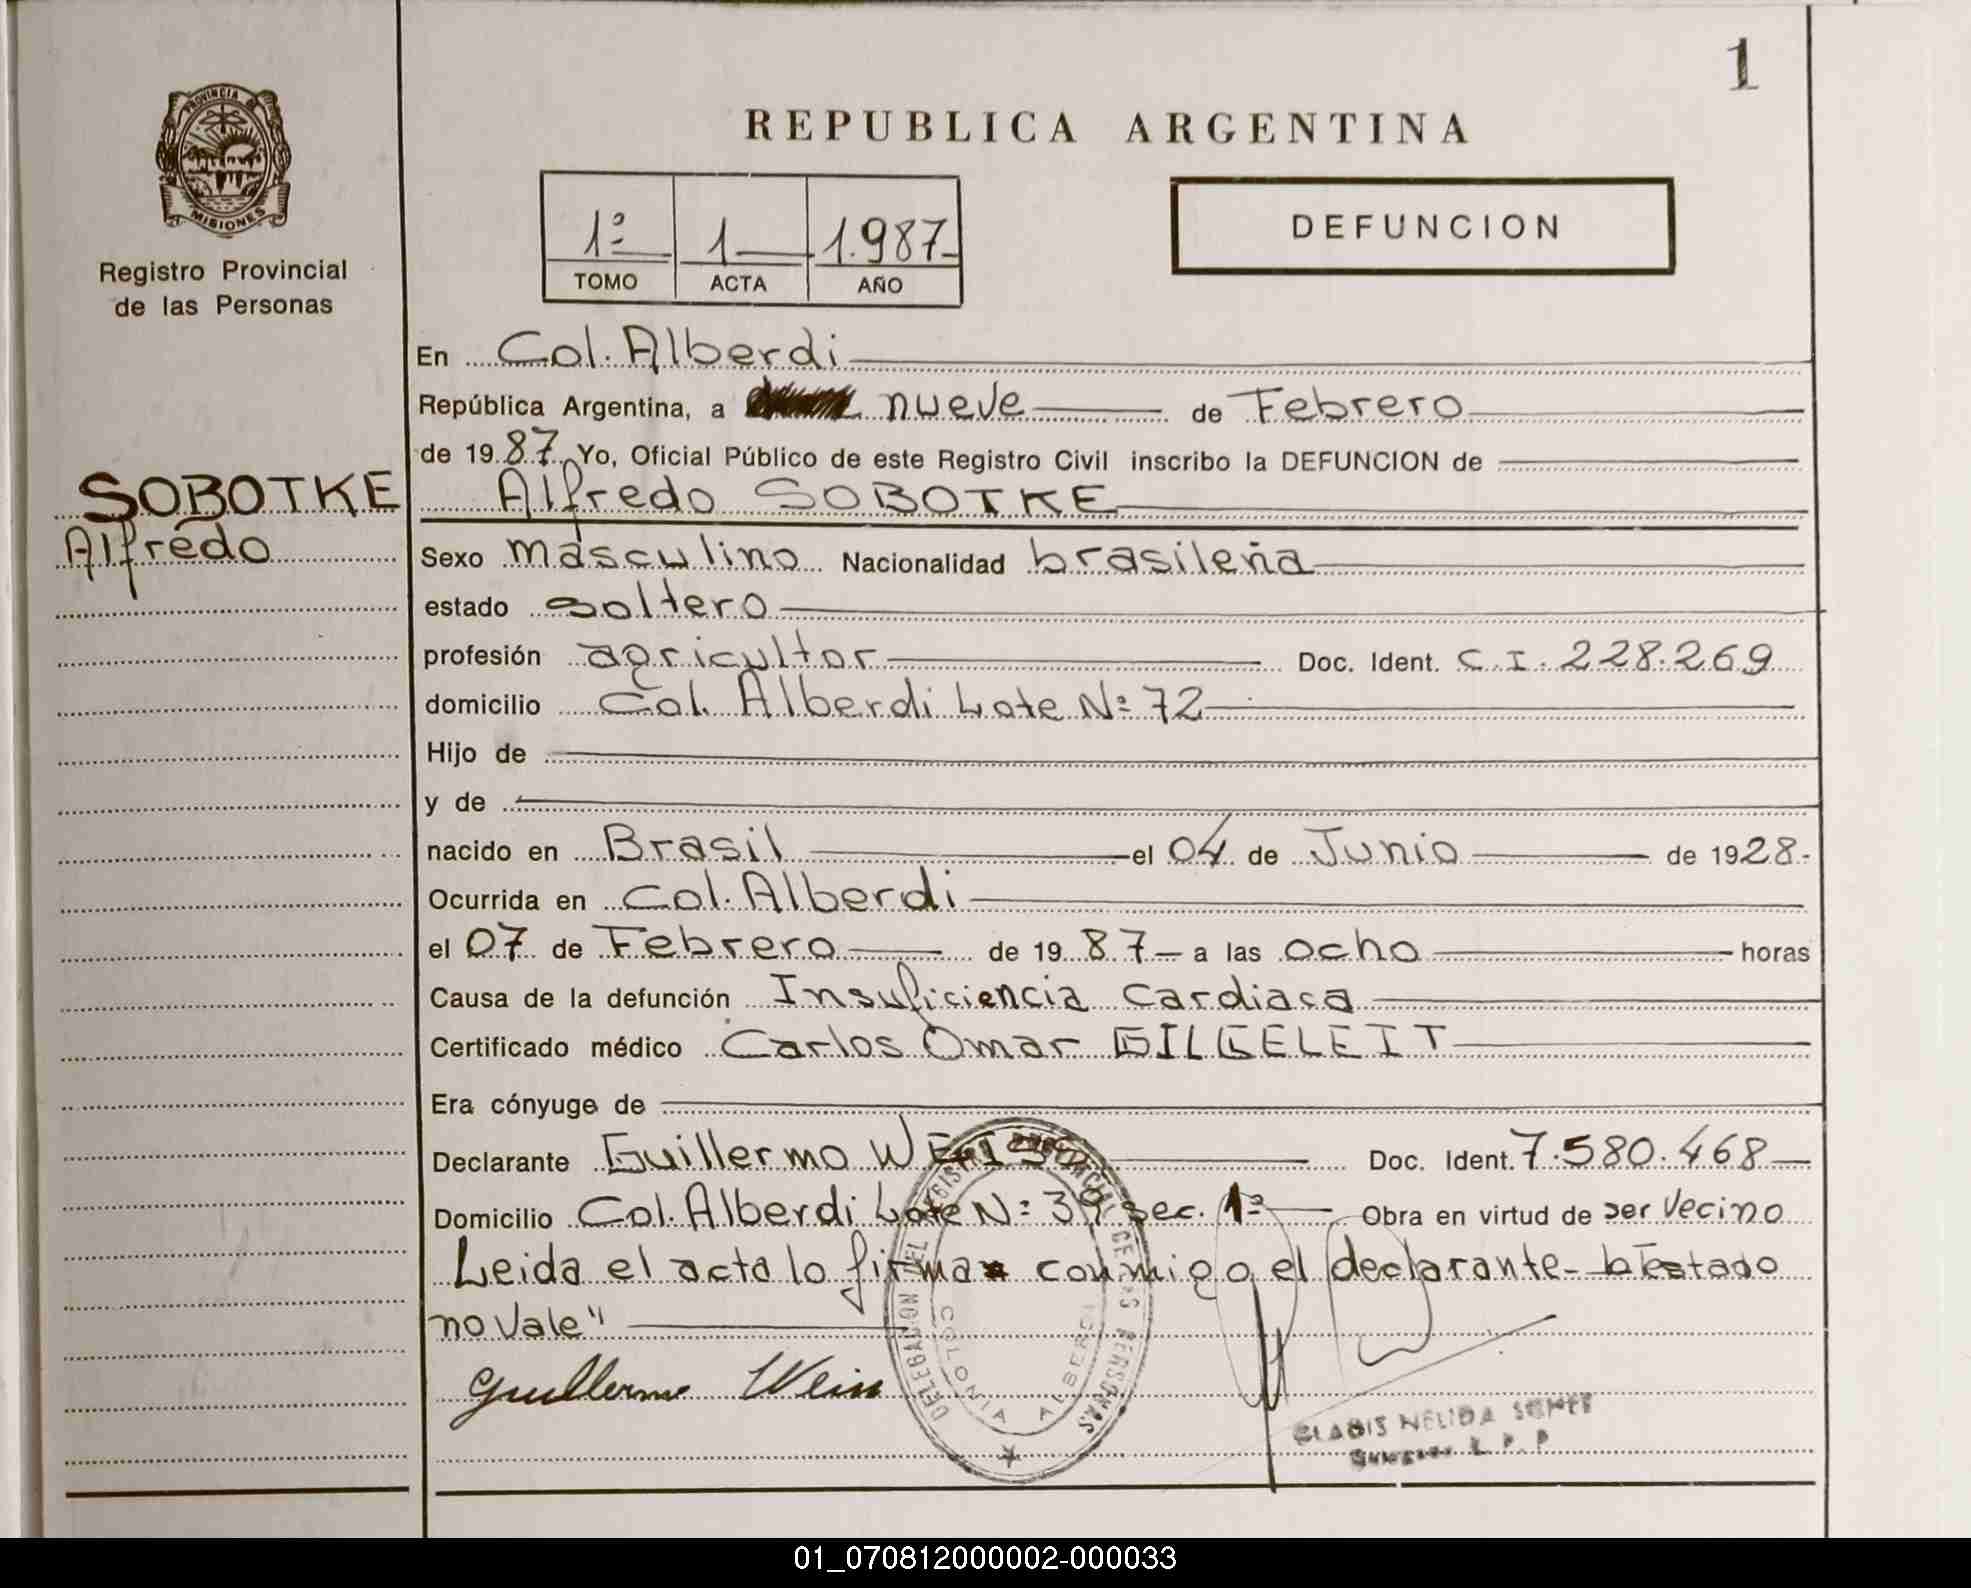 1
PROVINCIA DE
MISIONES
Registro Provincial
de las Personas
REPUBLICA ARGENTINA
1º 1 1.987
TOMO ACTA AÑO
DEFUNCION
En Col. Alberdi
República Argentina, a nueve de Febrero
de 1987 Yo, Oficial Público de este Registro Civil inscribo la DEFUNCION de
SOBOTKE Alfredo SOBOTKE
Alfredo
Sexo masculino Nacionalidad brasileña
estado soltero
profesión agricultor Doc. Ident. C.I. 228.269
domicilio Col. Alberdi Lote Nº 72
Hijo de
y de
nacido en Brasil el 04 de Junio de 1928.
Ocurrida en Col. Alberdi
el 07 de Febrero de 1987 a las ocho horas
Causa de la defunción Insuficiencia Cardiaca
Certificado médico Carlos Omar GILGELEIT
Era cónyuge de
Declarante Guillermo WEIS Doc. Ident. 7.580.468
Domicilio Col. Alberdi Lote Nº 39 sec. 1º Obra en virtud de ser Vecino
Leida el acta lo firma conmigo el declarante-
no vale"
Guillermo Weis
DELEGACION DEL REGISTRO PROVINCIAL DE LAS PERSONAS
COLONIA ALBERDI
GLADIS NELIDA
R. P. P
01_070812000002-000033